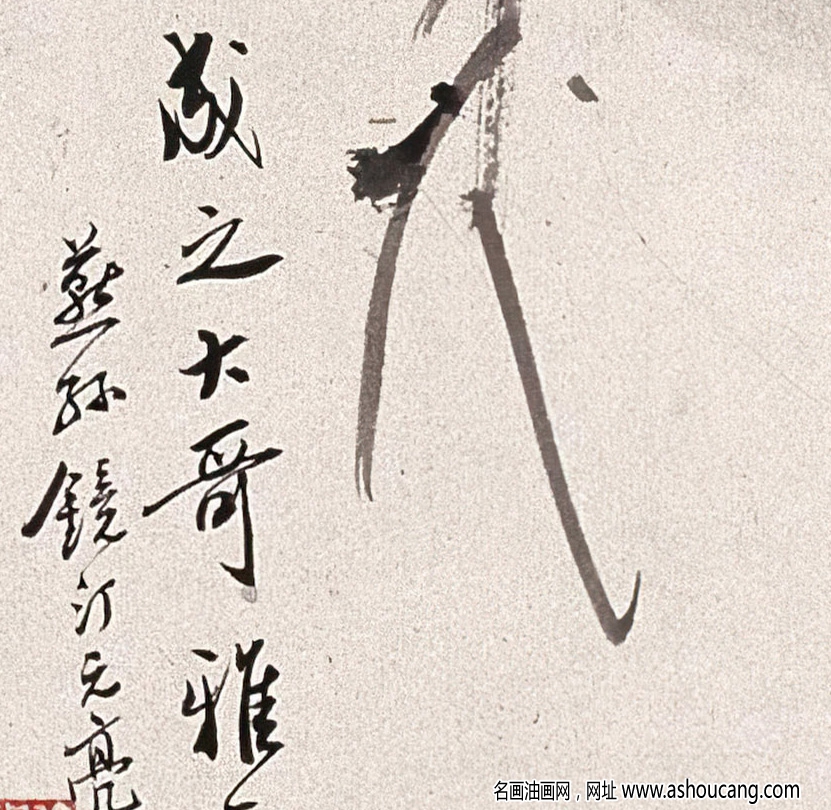 成之大哥雅
燕孫鏡汀元亮
名画油画网，网址 www.ashoucang.com